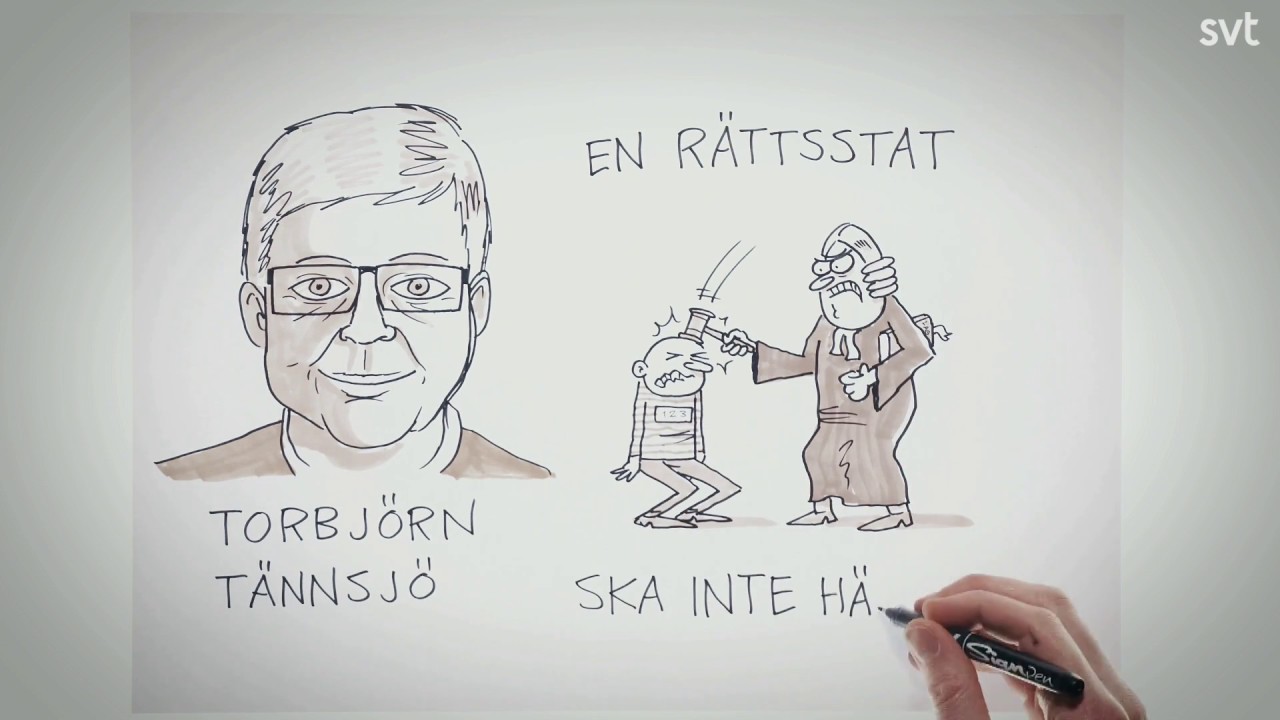 svt
EN RÄTTSSTAT
123
TORBJÖRN
TÄNNSJÖ
SKA INTE HÄ
Sign pen